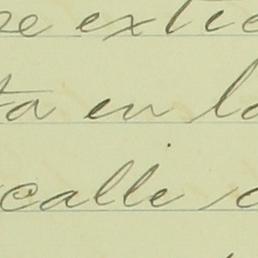 re exti
ta en la
calle